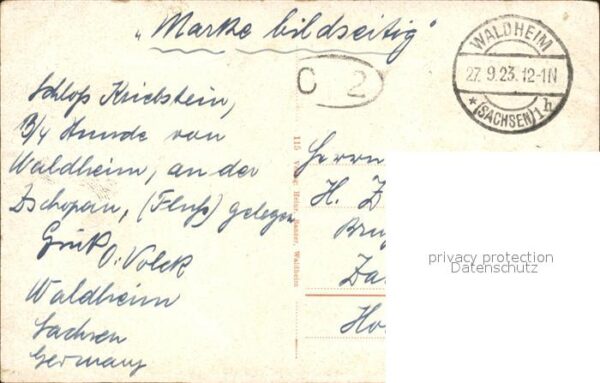 "Marke bildseitig"
WALDHEIM
27.9.23.12-1N
* (SACHSEN) 1h
C 2
Schloß Kriebstein,
3/4 Stunde von
Waldheim, an der
Zschopau, (Fluß) gelegen
Gruß
O. Volck
Waldheim
Sachsen
Germany
115 Verlag Heinr. Waldheim
Herrn
H. Z
Za
Ho
privacy protection
Datenschutz